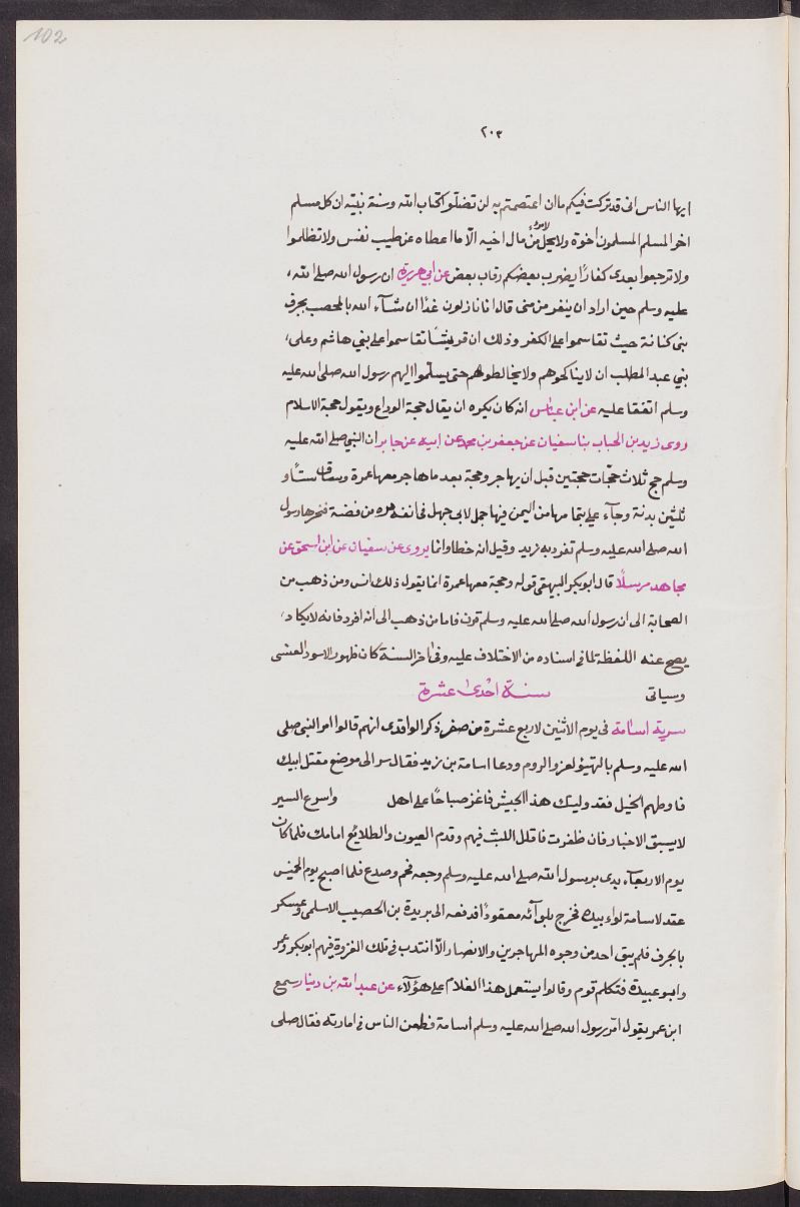 102
٢٠٣
ايها الناس انى قد تركت فيكم ما ان اعتصمتم به لن تضلوا كتاب الله وسنة نبيّه ان كل مسلم
اخو المسلم المسلمون اخوة ولا يحل لامرء من مال اخيه الّا ما اعطاه عن طيب نفس ولا تظلموا
ولا ترجعوا بعدى كفارًا يضرب بعضكم رقاب بعض عن ابي هريرة ان رسول الله صلى الله،
عليه وسلم حين اراد ان ينفر من منى قال انا نازلون غدًا ان شآء الله بالمحصب بخيف
بنى كنانة حيث تقاسموا على الكفر وذلك ان قريشًا تقاسموا على بني هاشم وعلى،
بني عبد المطلب ان لا يناكحوهم ولا يخالطوهم حتى يسلّموا اليهم رسول الله صلى الله عليه
وسلم اتفقا عليه عن ابن عباس انه كان يكره ان يقال حجة الوداع ويقول حجة الاسلام
روى زيد بن الحباب بنا سفيان عن جعفر بن محمد عن ابيه عن جابر ان النبي صلى الله عليه
وسلم حج ثلاث حجّات حجتين قبل ان يهاجر وحجة بعد ما هاجر معها عمرة وساق ستًا و
ثلثين بدنة وجآء علي بتمامها من اليمن فيها جمل لابى جهل فى انفه بره من فضة فنحرها رسول
الله صلى الله عليه وسلم تفرد به زيد وقيل انه خطا وانا يروى عن سفيان عن ابن اسحق عن
مجاهد مرسلًا قال ابو بكر البيهقى قوله وحجة معها عمرة انما يقول ذلك انس ومن ذهب من
الصحابة الى ان رسول الله صلى الله عليه وسلم قرن فاما من ذهب الى انه افرد فانه لا يكاد،
يصح عنه اللفظة لما فى اسناده من الاختلاف عليه وفى اخر السنة كان ظهور الاسود العنسى
وسياتى سنة احدى عشرة
سرية اسامة فى يوم الاثنين لاربع عشرة من صفر ذكر الواقدى انهم قالوا امر النبي صلى
الله عليه وسلم بالتهيؤ لغزو الروم ودعا اسامة بن زيد فقال سر الى موضع مقتل ابيك
فاوطهم الخيل فقد وليتك هذا الجيش فاغز صباحًا على اهل واسرع السير
لا يسبق الاخبار فان ظفرت فاقلل اللبث فيهم وقدم العيون والطلايع امامك فلما كان
يوم الاربعآء بدى برسول الله صلى الله عليه وسلم وجعه فحم وصدع فلما اصبح يوم الخميس
عقد لاسامة لواء بيده فخرج بلوآئه معقودًا فدفعه الى بريدة بن الحصيب الاسلمى وعسكر
بالجرف فلم يبق احد من وجوه المهاجرين والانصار الّا انتدب فى تلك الغزوة فيهم ابو بكر وعمر
وابو عبيدة فتكلم قوم وقالوا يستعمل هذا الغلام على هؤلآء عن عبد الله بن دينار سمع
ابن عمر يقول امّر رسول الله صلى الله عليه وسلم اسامة فطعن الناس فى امارته فقال صلى